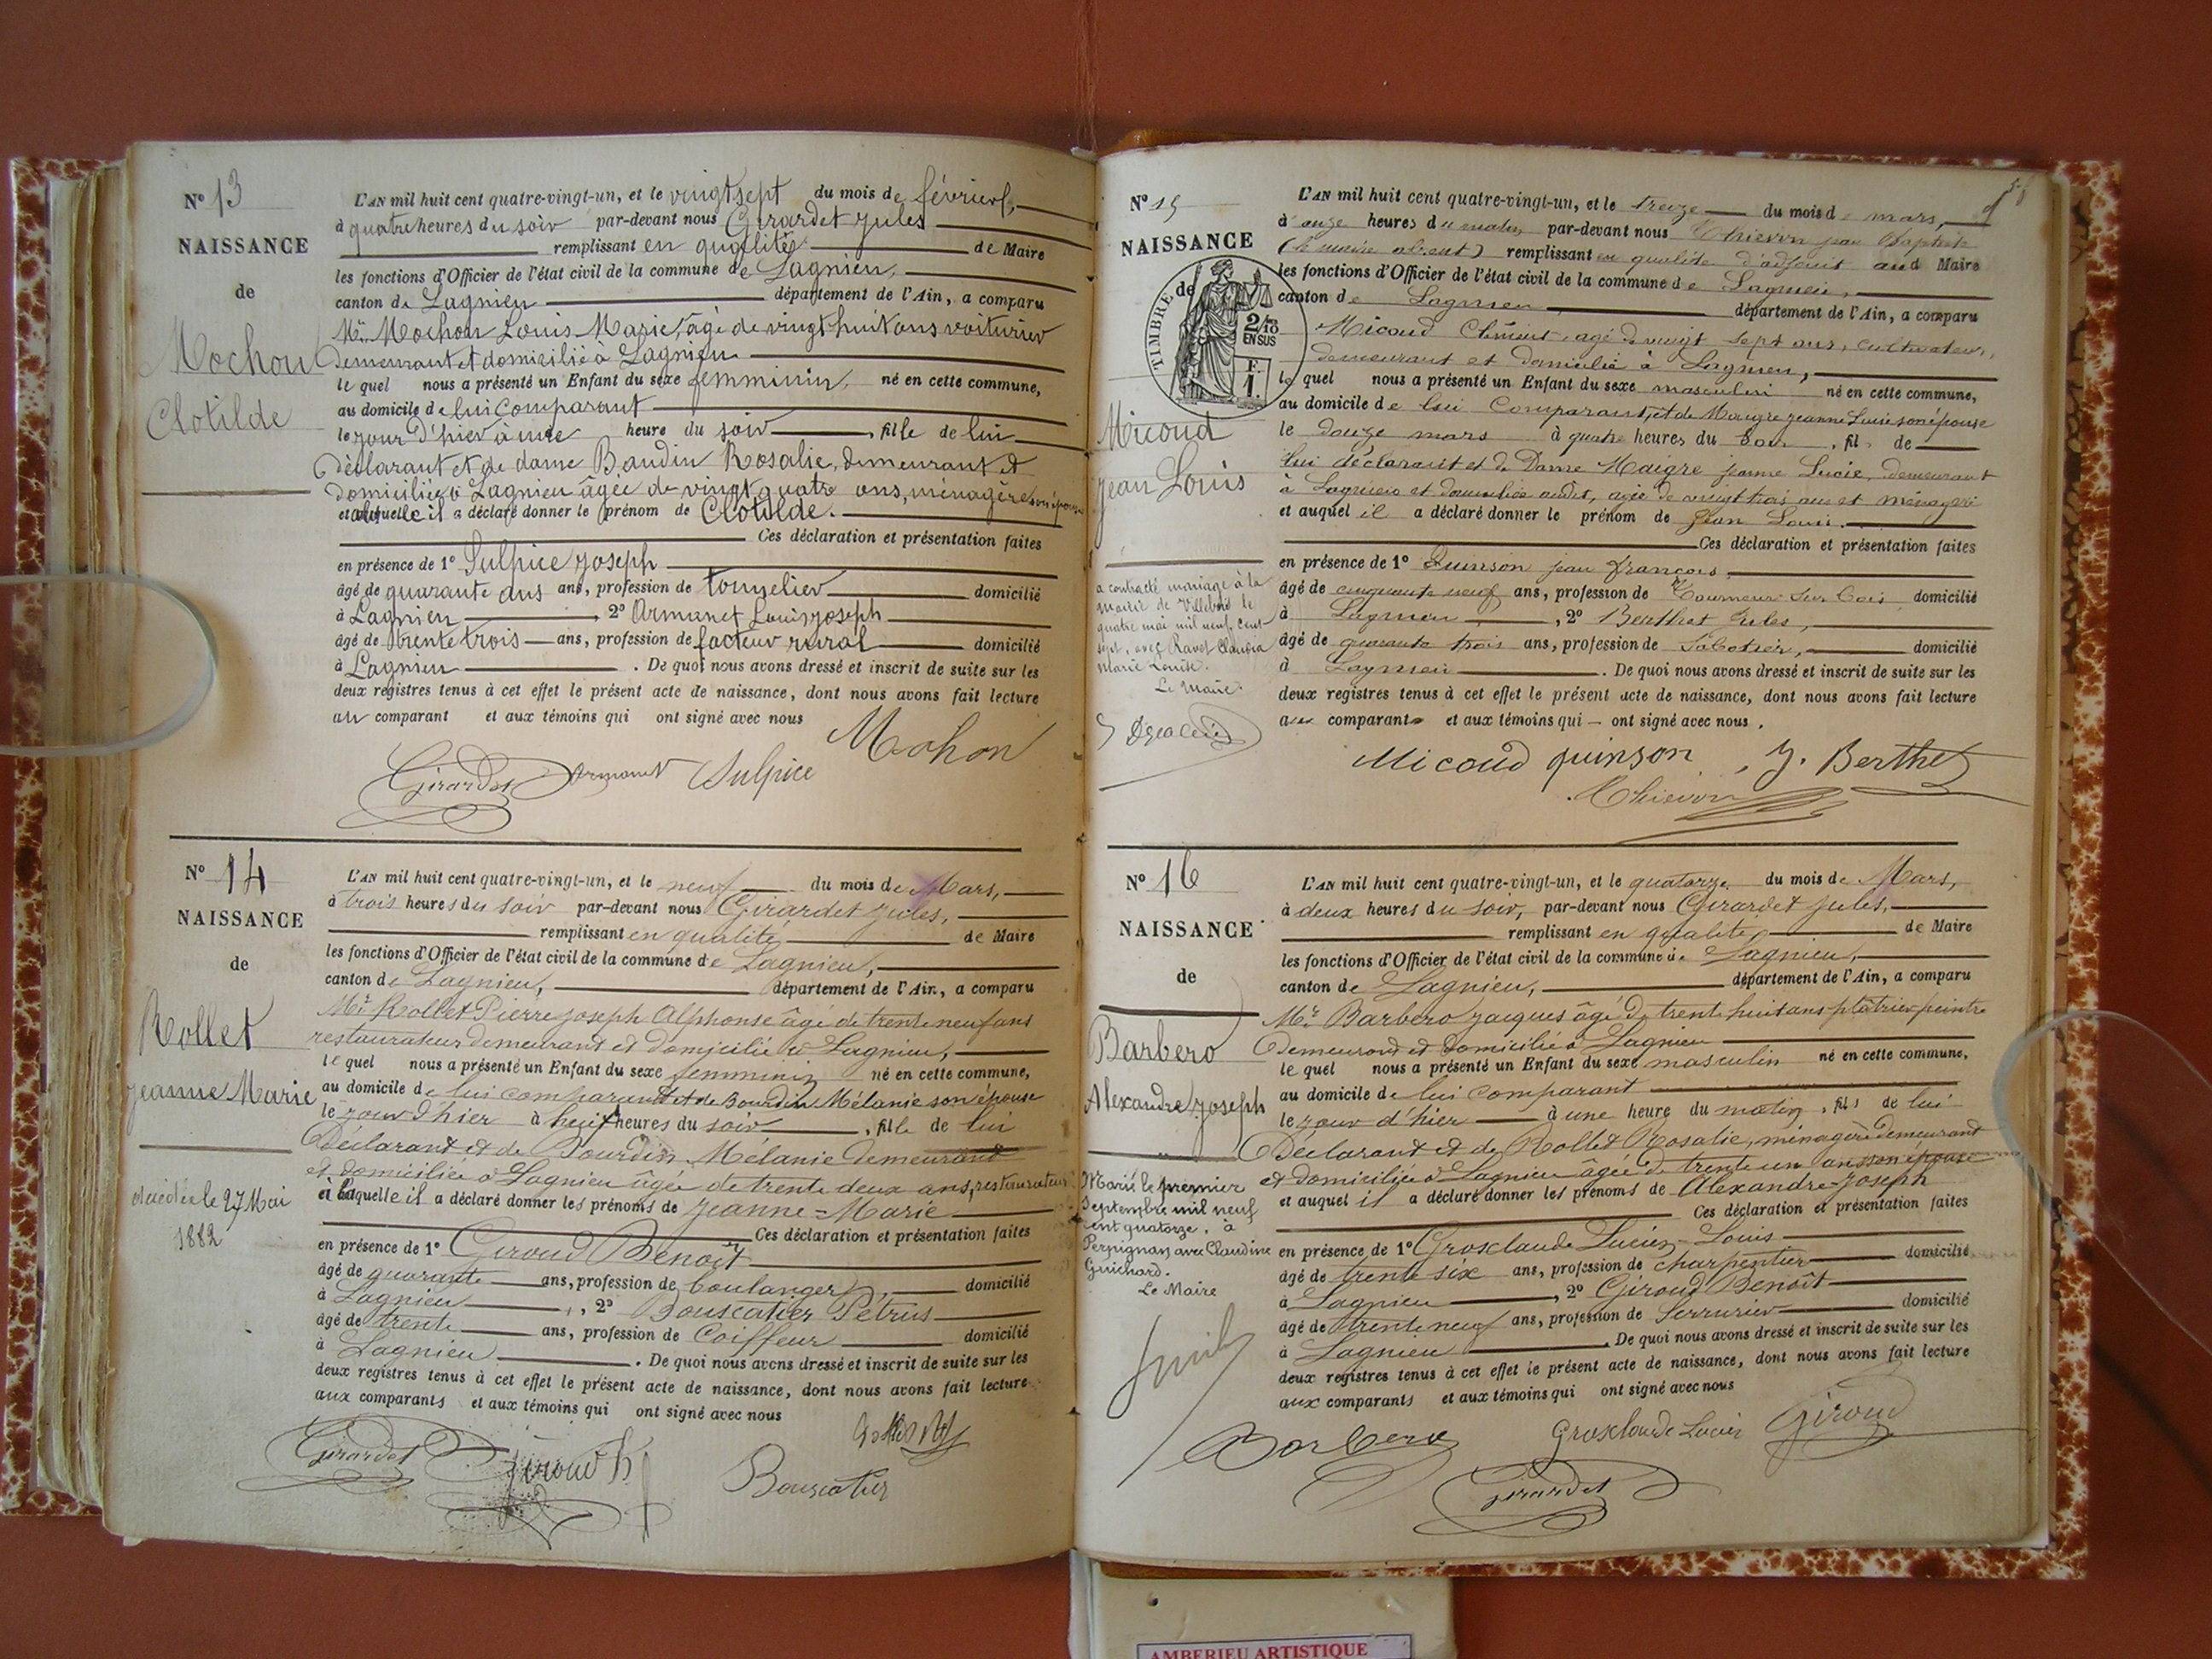 N° 13
NAISSANCE
de
Mochon
Clotilde
L'AN mil huit cent quatre-vingt-un, et le vingt sept du mois de février,
à quatre heures du soir par-devant nous Girardet Jules
remplissant en qualité de Maire
les fonctions d'Officier de l'état civil de la commune de Lagnieu,
canton de Lagnieu département de l'Ain, a comparu
Mr. Mochon Louis Marie, âgé de vingt huit ans voiturier
demeurant et domicilié à Lagnieu
le quel nous a présenté un Enfant du sexe femminin, né en cette commune,
au domicile de lui comparant
le jour d'hier à une heure du soir, fille de lui
déclarant et de dame Baudin Rosalie, demeurant et
domiciliée à Lagnieu âgée de vingt quatre ans, ménagère son épouse
et à laquelle il a déclaré donner le prénom de Clotilde.
Ces déclaration et présentation faites
en présence de 1° Sulpice Joseph
âgé de quarante ans ans, profession de tonnelier domicilié
à Lagnieu, 2° Armanet Louis Joseph
âgé de trente trois ans, profession de facteur rural domicilié
à Lagnieu. De quoi nous avons dressé et inscrit de suite sur les
deux registres tenus à cet effet le présent acte de naissance, dont nous avons fait lecture
au comparant et aux témoins qui ont signé avec nous
Mochon
Girardet Armanet Sulpice
N° 14
NAISSANCE
de
Rollet
Jeanne Marie
décédée le 27 Mai
1882
L'AN mil huit cent quatre-vingt-un, et le neuf du mois de Mars,
à trois heures du soir par-devant nous Girardet Jules,
remplissant en qualité de Maire
les fonctions d'Officier de l'état civil de la commune de Lagnieu,
canton de Lagnieu, département de l'Ain, a comparu
Mr. Rollet Pierre Joseph Alphonse âgé de trente neuf ans
restaurateur demeurant et domicilié à Lagnieu,
le quel nous a présenté un Enfant du sexe femminin né en cette commune,
au domicile de lui comparant et de Bourdin Mélanie son épouse
le jour d'hier à huit heures du soir, fille de lui
Déclarant et de Bourdin Mélanie demeurant
et domiciliée à Lagnieu âgée de trente deux ans, restaurateur
et à laquelle il a déclaré donner les prénoms de Jeanne=Marie
Ces déclaration et présentation faites
en présence de 1° Giroud Benoît
âgé de quarante ans, profession de boulanger, domicilié
à Lagnieu, 2° Bouscatier Pétrus
âgé de trente ans, profession de Coiffeur domicilié
à Lagnieu. De quoi nous avons dressé et inscrit de suite sur les
deux registres tenus à cet effet le présent acte de naissance, dont nous avons fait lecture
aux comparants et aux témoins qui ont signé avec nous
Girardet Giroud B Bouscatier
N° 15
NAISSANCE
de
TIMBRE
2/10
EN SUS
F.
1.
Micoud
Jean Louis
a contracté mariage à la
mairie de Villebois le
quatre mai mil neuf cent
sept, avec Ravet Claudia
Marie Louise.
Le Maire
L'AN mil huit cent quatre-vingt-un, et le treize du mois de mars,
à onze heures du matin par-devant nous Thievon jean Baptiste
(le maire absent) remplissant en qualité d'adjoint aud Maire
les fonctions d'Officier de l'état civil de la commune de Lagnieu,
canton de Lagnieu département de l'Ain, a comparu
Micoud Clément, agé de vingt sept ans, cultivateur,
demeurant et domicilié à Lagnieu,
le quel nous a présenté un Enfant du sexe masculin né en cette commune,
au domicile de lui Comparant, et de Maigre jeanne Lucie son épouse
le douze mars à quatre heures du soir, fils de
lui déclarant et de Dame Maigre jeanne Lucie, demeurant
à Lagnieu et domiciliée audit, agée de vingt trois ans et ménagère
et auquel il a déclaré donner le prénom de Jean Louis.
Ces déclaration et présentation faites
en présence de 1° Quinson jean françois
âgé de cinquante neuf ans, profession de Tourneur sur bois domicilié
à Lagnieu, 2° Berthet Jules,
âgé de quarante trois ans, profession de Sabotier, domicilié
à Lagnieu. De quoi nous avons dressé et inscrit de suite sur les
deux registres tenus à cet effet le présent acte de naissance, dont nous avons fait lecture
aux comparants et aux témoins qui ont signé avec nous.
Micoud quinson J. Berthet
Thievon
N° 16
NAISSANCE
de
Barbero
Alexandre Joseph
Marié le premier
Septembre mil neuf
cent quatorze, à
Perpignan avec Claudine
Guichard.
Le Maire
L'AN mil huit cent quatre-vingt-un, et le quatorze du mois de Mars,
à deux heures du soir, par-devant nous Girardet Jules,
remplissant en qualité de Maire
les fonctions d'Officier de l'état civil de la commune de Lagnieu,
canton de Lagnieu, département de l'Ain, a comparu
Mr. Barbero Jacques âgé de trente huit ans plâtrier peintre
Demeurant et domicilié à Lagnieu
le quel nous a présenté un Enfant du sexe masculin né en cette commune,
au domicile de lui comparant
le jour d'hier à une heure du matin, fils de lui
Déclarant et de Rollet Rosalie, ménagère demeurant
et domiciliée à Lagnieu âgée de trente un ans son épouse
et auquel il a déclaré donner les prénoms de Alexandre-Joseph
Ces déclaration et présentation faites
en présence de 1° Grosclaude Lucien-Louis
âgé de trente six ans, profession de charpentier domicilié
à Lagnieu, 2° Giroud Benoît
âgé de trente neuf ans, profession de Serrurier domicilié
à Lagnieu. De quoi nous avons dressé et inscrit de suite sur les
deux registres tenus à cet effet le présent acte de naissance, dont nous avons fait lecture
aux comparants et aux témoins qui ont signé avec nous
Barbero Grosclaude Lucien Giroud
Girardet
AMBERIEU ARTISTIQUE